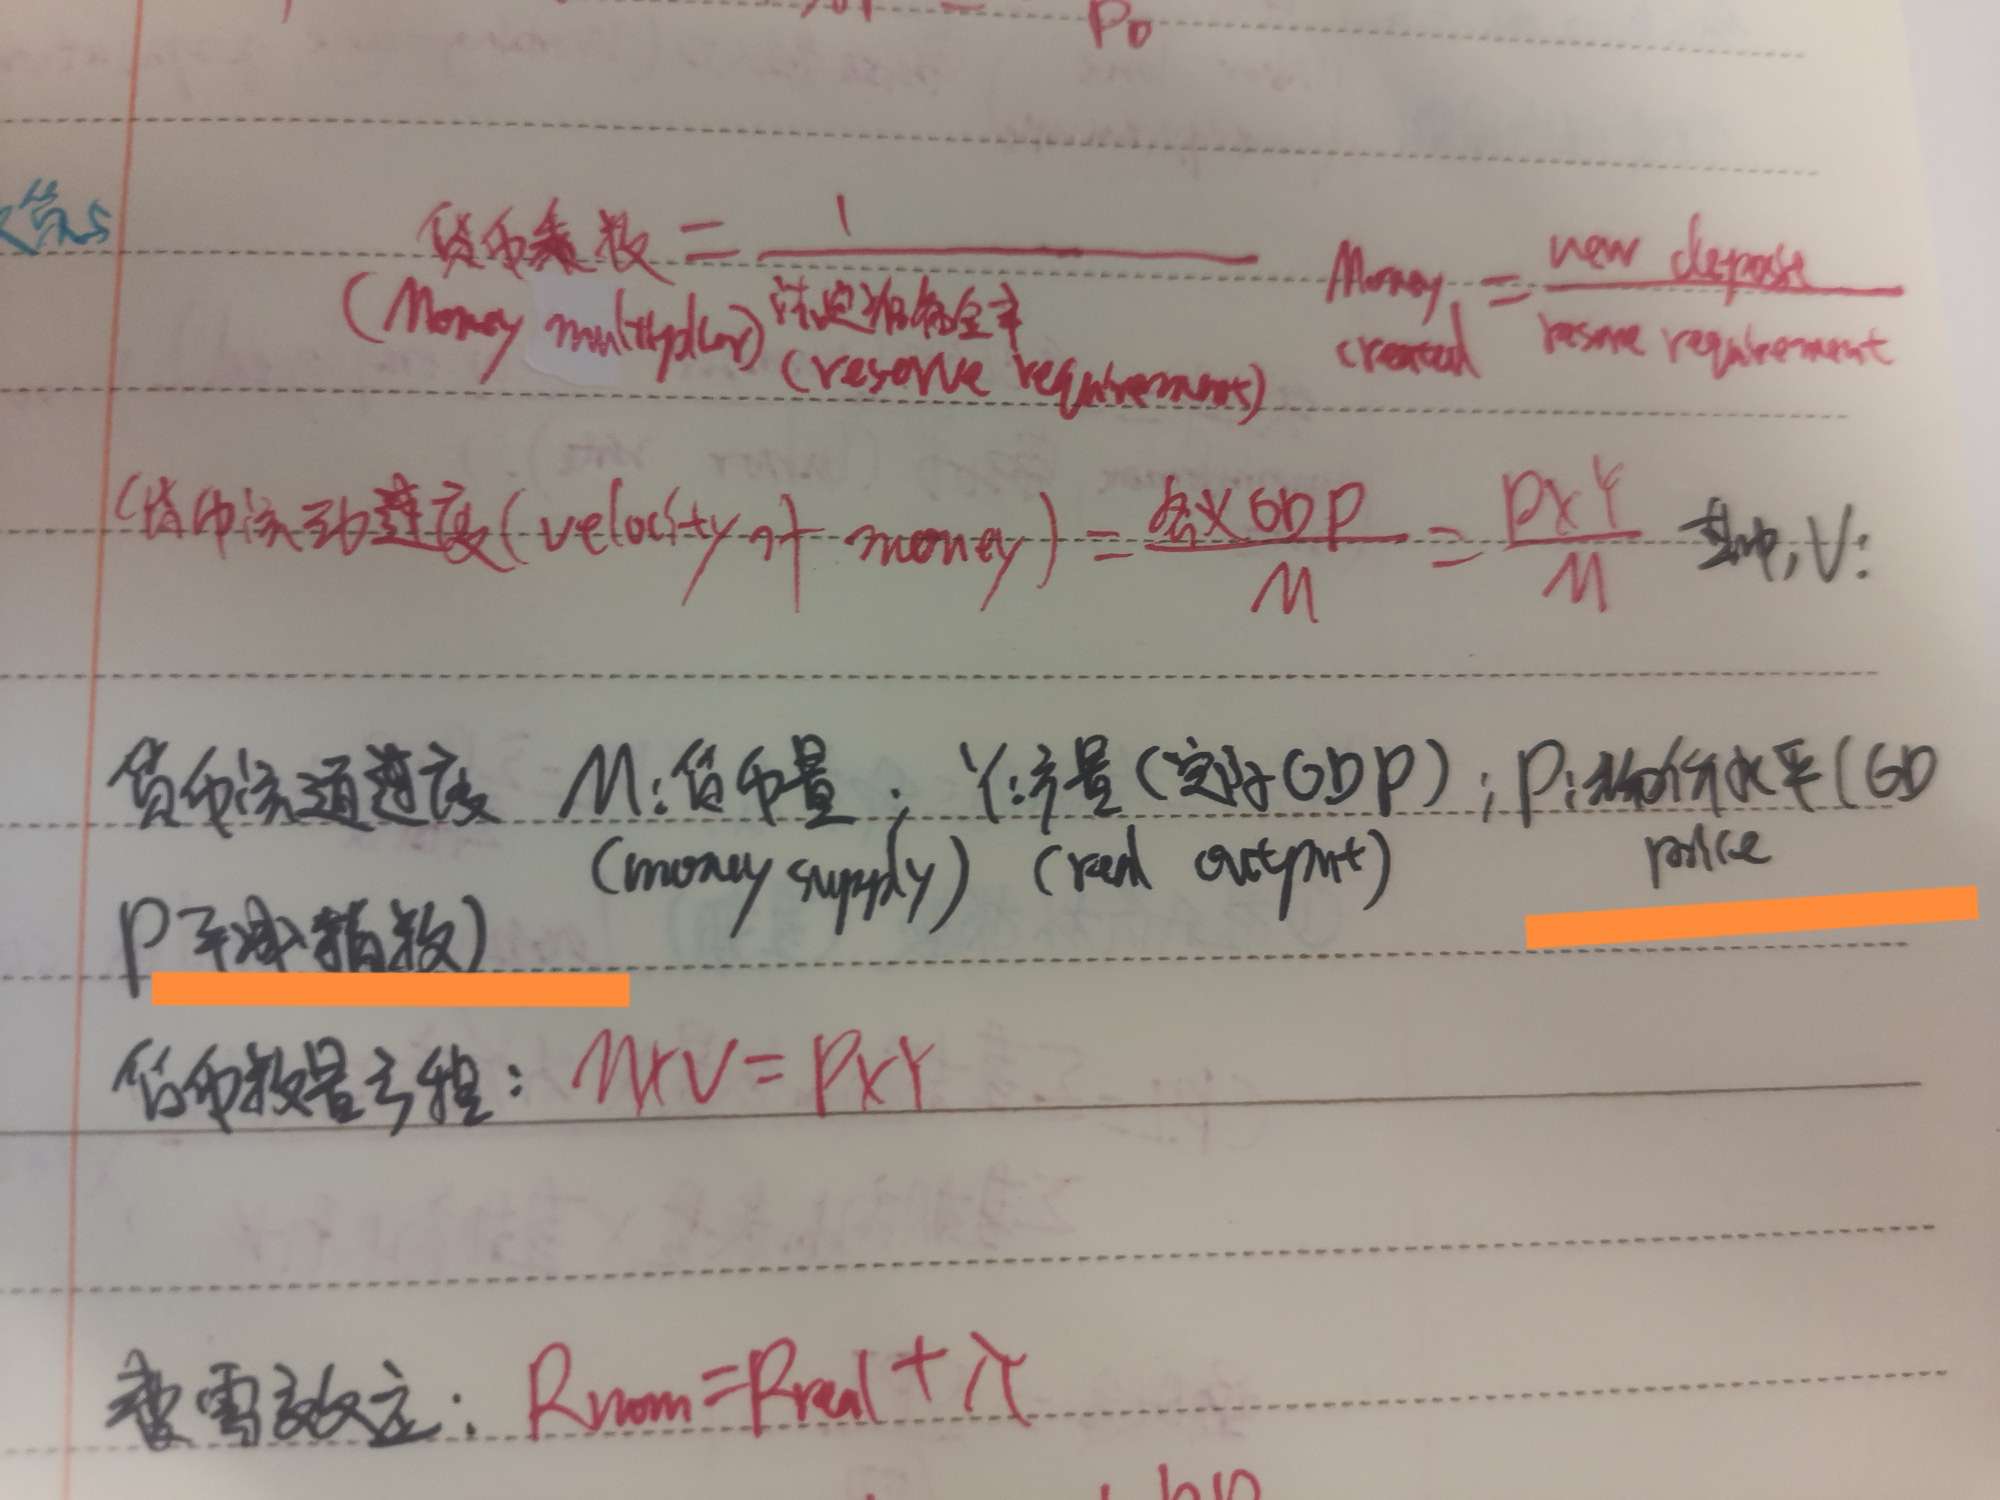 P0
货币乘数 = 1 Money = new deposit
(Money multiplier) 法定准备金率 created reserve requirement
(reserve requirement)
货币流动速度(velocity of money) = 名义GDP / M = P×Y / M 其中,V:
货币流通速度 M:货币量; Y:产量(实际GDP); P:物价水平(GD
(money supply) (real output) price
P平减指数)
货币数量方程: M×V=P×Y
费雪效应: Rnom=Rreal+π